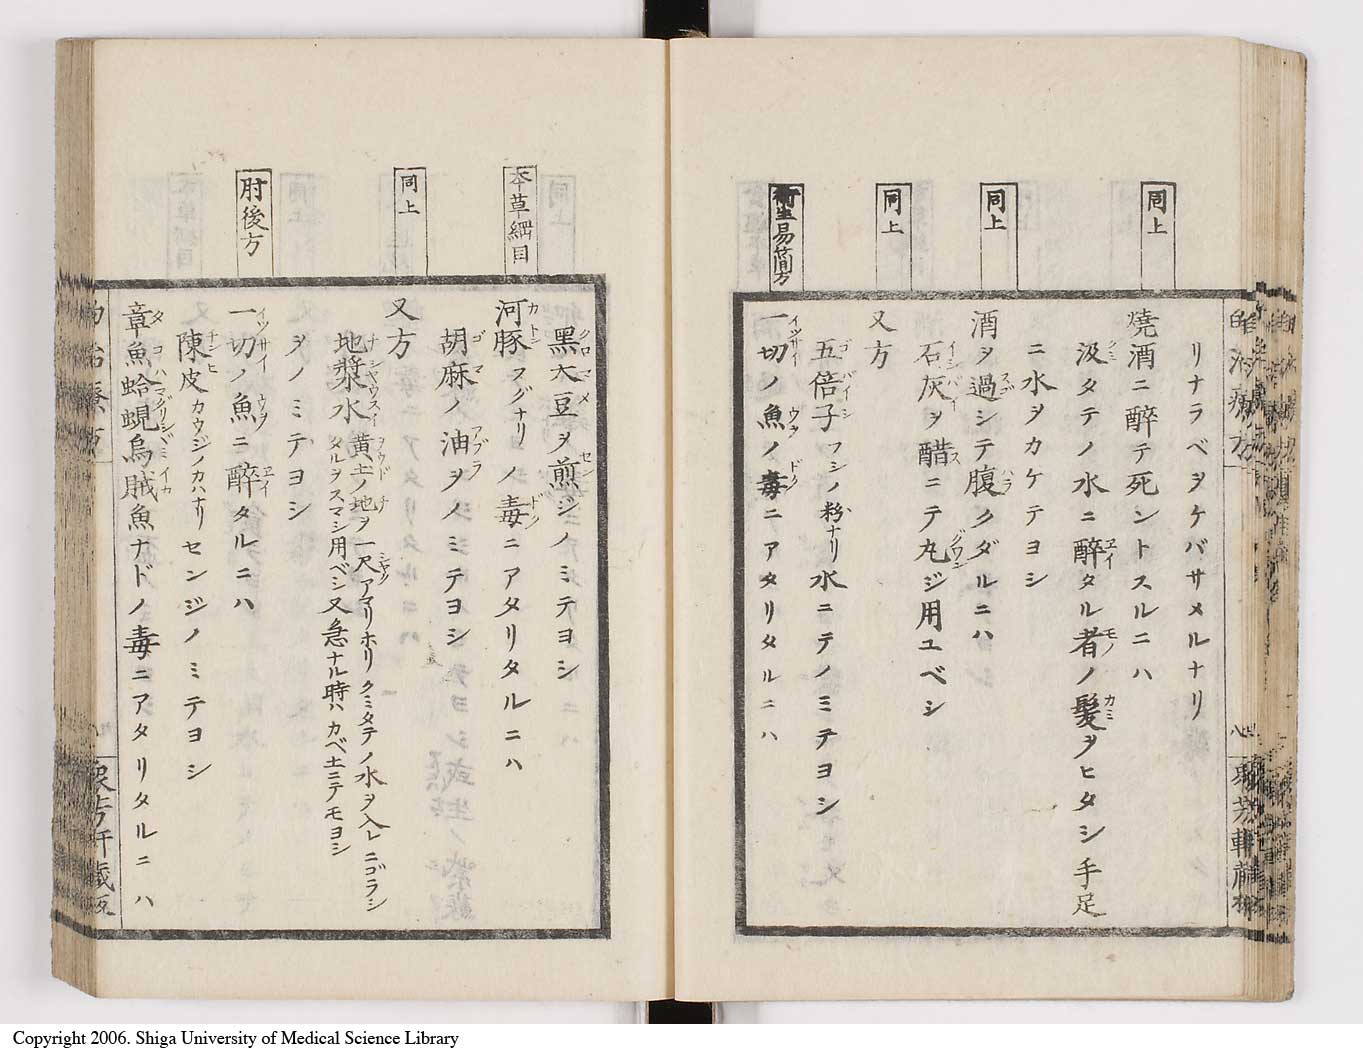 同上
同上
同上
衛生易簡方
リナラベヲケバサメルナリ
燒酒ニ醉テ死ントスルニハ
汲タテノ水ニ醉タル者ノ髮ヲヒタシ手足
ニ水ヲカケテヨシ
酒ヲ過シテ腹クダルニハ
石灰ヲ醋ニテ丸ジ用ユベシ
又方
五倍子フシノ粉ナリ水ニテノミテヨシ
一切ノ魚ノ毒ニアタリタルニハ
本草綱目
同上
肘後方
黑大豆ヲ煎ジノミテヨシ
河豚フグナリノ毒ニアタリタルニハ
胡麻ノ油ヲノミテヨシ
又方
地漿水黄土ノ地ヲ一尺アマリホリクミタテノ水ヲ入レニゴラシ
タルヲスマシ用ベシ又急ナル時ハカベ土ニテモヨシ
ヲノミテヨシ
一切ノ魚ニ醉タルニハ
陳皮カウジノカハナリセンジノミテヨシ
章魚蛤蜆烏賊魚ナドノ毒ニアタリタルニハ
Copyright 2006. Shiga University of Medical Science Library